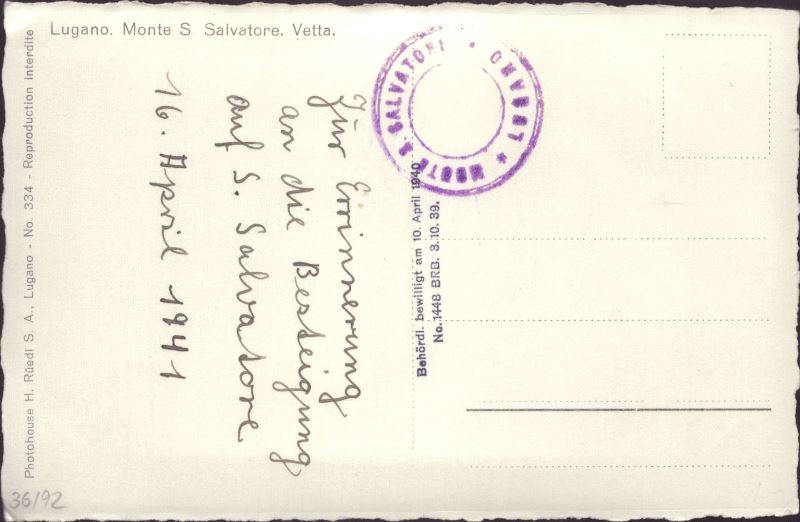 Lugano. Monte S Salvatore. Vetta.
Photohouse H. Rüedi S. A., Lugano - No. 334 - Reproduction interdite
MONTE S. SALVATORE * LUGANO *
Behördl. bewilligt am 10. April 1940
No. 1448 BRB. 3.10.39.
Zur Erinnerung
an die Besteigung
auf S. Salvatore
16. April 1941
36/92